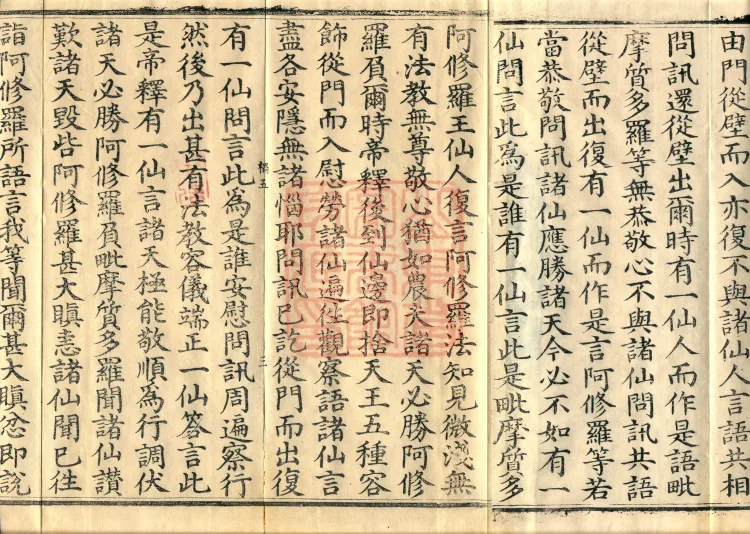 由門從壁而入亦復不與諸仙人言語共相
問訊還從壁出爾時有一仙人而作是語毗
摩質多羅等無恭敬心不與諸仙問訊共語
從壁而出復有一仙而作是言阿修羅等若
當恭敬問訊諸仙應勝諸天今必不如有一
仙問言此為是誰有一仙言此是毗摩質多
阿修羅王仙人復言阿修羅法知見微淺無
有法教無尊敬心猶如農夫諸天必勝阿修
羅負爾時帝釋後到仙邊即捨天王五種容
飾從門而入慰勞諸仙遍徃觀察語諸仙言
盡各安隱無諸惱耶問訊已訖從門而出復
三
有一仙問言此為是誰安慰問訊周遍察行
然後乃出甚有法教容儀端正一仙荅言此
是帝釋有一仙言諸天極能敬順為行調伏
諸天必勝阿修羅負毗摩質多羅聞諸仙讃
歎諸天毀呰阿修羅甚大瞋恚諸仙聞已徃
詣阿修羅所語言我等聞爾甚大瞋忿即說